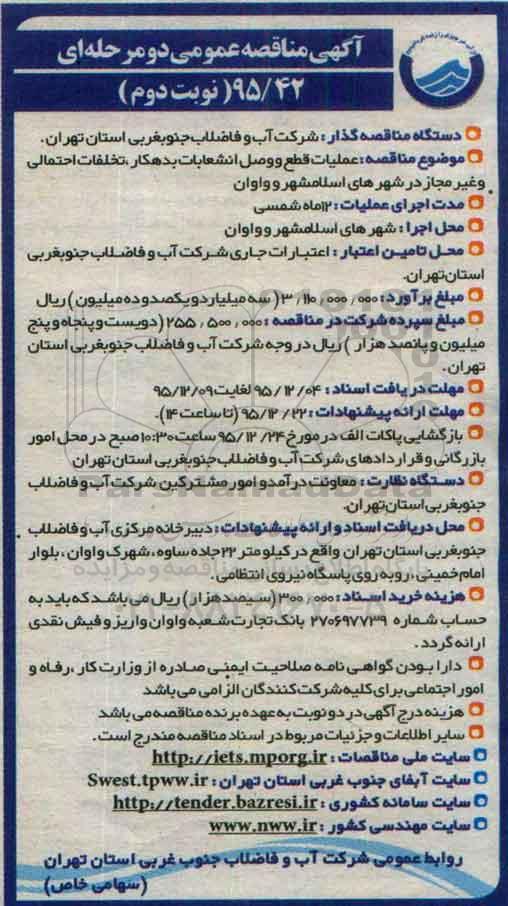 آگهی مناقصه عمومی دو مرحله‌ای
۹۵/۴۲( نوبت دوم )
دستگاه مناقصه گذار : شرکت آب و فاضلاب جنوبغربی استان تهران.
موضوع مناقصه : عملیات قطع و وصل انشعابات بدهکار ،تخلفات احتمالی
وغیر مجاز در شهر های اسلامشهر و واوان
مدت اجرای عملیات : ۱۲ماه شمسی
محل اجرا : شهر های اسلامشهر و واوان
محل تامین اعتبار : اعتبارات جاری شرکت آب و فاضلاب جنوبغربی
استان تهران.
مبلغ برآورد : ۳/۱۱۰/۰۰۰/۰۰۰ ( سه میلیارد و یکصد و ده میلیون ) ریال
مبلغ سپرده شرکت در مناقصه : ۲۵۵/۵۰۰/۰۰۰ (دویست و پنجاه و پنج
میلیون و پانصد هزار ) ریال در وجه شرکت آب و فاضلاب جنوبغربی استان
تهران.
مهلت دریافت اسناد : ۹۵/۱۲/۰۴ لغایت ۹۵/۱۲/۰۹
مهلت ارائه پیشنهادات : ۹۵/۱۲/۲۲ (تا ساعت ۱۴).
بازگشایی پاکات الف در مورخ ۹۵/۱۲/۲۴ ساعت ۱۰:۳۰ صبح در محل امور
بازرگانی و قراردادهای شرکت آب و فاضلاب جنوبغربی استان تهران
دستگاه نظارت : معاونت درآمد و امور مشترکین شرکت آب و فاضلاب
جنوبغربی استان تهران.
محل دریافت اسناد و ارائه پیشنهادات : دبیرخانه مرکزی آب و فاضلاب
جنوبغربی استان تهران واقع در کیلومتر ۲۲ جاده ساوه ، شهرک واوان ، بلوار
امام خمینی ، روبه روی پاسگاه نیروی انتظامی.
هزینه خرید اسناد : ۳۰۰/۰۰۰ (سیصد هزار) ریال می باشد که باید به
حساب شماره ۲۷۰۶۹۷۷۳۹ بانک تجارت شعبه واوان واریز و فیش نقدی
ارائه گردد .
دارا بودن گواهی نامه صلاحیت ایمنی صادره از وزارت کار ،رفاه و
امور اجتماعی برای کلیه شرکت کنندگان الزامی می باشد
هزینه درج آگهی در دو نوبت به عهده برنده مناقصه می باشد
سایر اطلاعات و جزئیات مربوط در اسناد مناقصه مندرج است .
سایت ملی مناقصات : http://iets.mporg.ir
سایت آبفای جنوب غربی استان تهران : Swest.tpww.ir
سایت سامانه کشوری : http://tender.bazresi.ir
سایت مهندسی کشور : www.nww.ir
روابط عمومی شرکت آب و فاضلاب جنوب غربی استان تهران
(سهامی خاص)